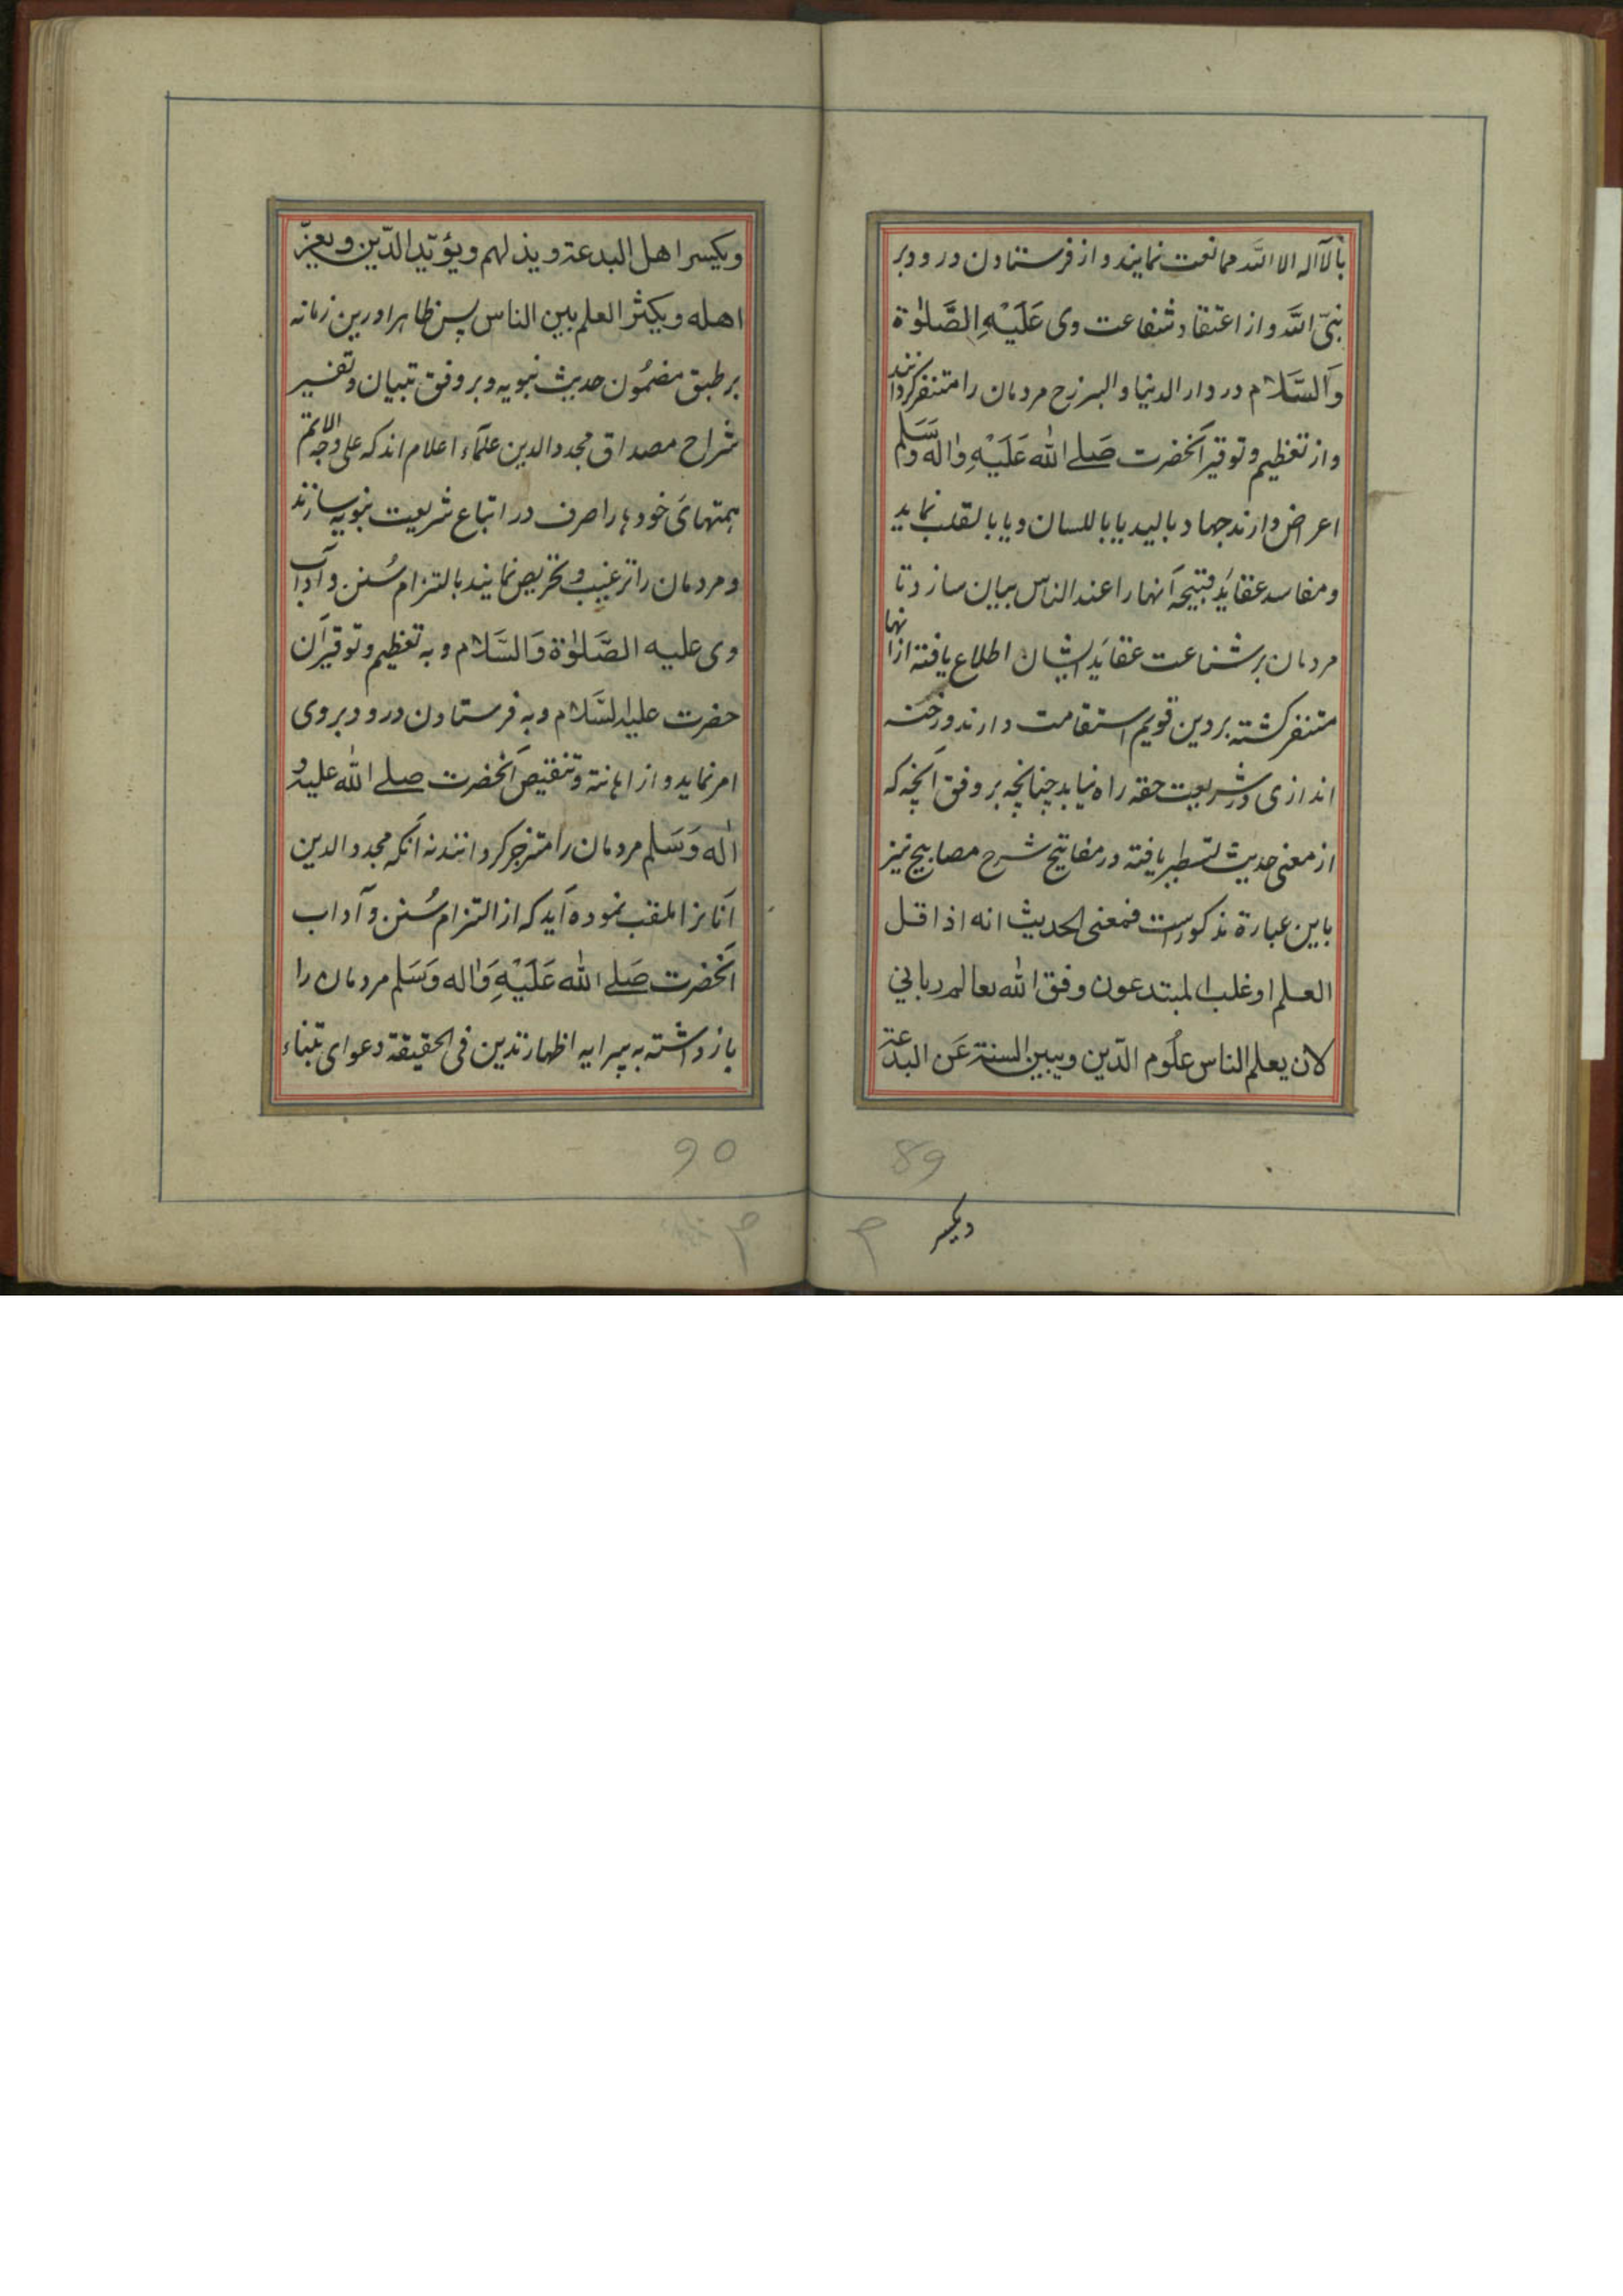 بالآاله الا الله ممانعت نمایند و از فرستادن درود بر
نبیّ الله و از اعتقاد شفاعت وی عَلَیْهِ الصَّلوٰة
وَالسَّلام در دار الدنیا والبرزخ مردمان را متنفر کردانند
و از تعظیم و توقیر آنحضرت صَلے الله عَلَیْهِ وَاٰله وَسَلم
اعراض دارند جهاد بالید یا باللسان و یا بالقلب نماید
و مفاسد عقاید قبیحه آنها را عند الناس بیان سازد تا
مردمان بر شناعت عقاید ایشان اطلاع یافته ازانها
متنفر کشته بر دین قویم استقامت دارند و رخنه
اندازی در شریعت حقه راه نیابد چنانچه بر وفق آنچه که
از معنی حدیث تسطیر یافته در مفاتیح شرح مصابیح نیز
باین عبارة مذکور است فمعنی الحدیث انه اذا قل
العلم او غلب المبتدعون وفق الله تعا لعالم ربانی
لان یعلم الناس علُوم الدّین ویبین السنة عَن البدعة
89
ویکسر
ویکسر اهل البدعة ویذلهم ویؤیّد الدّین ویعزّ
اهله ویکثر العلم بین الناس پس ظاهرا درین زمانه
بر طبق مضمُون حدیث نبویه و بر وفق تبیان و تفسیر
شراح مصداق مجدد الدین علمآء اعلام اند که علی وجه الاتم
همتهای خودها را صرف در اتباع شریعت نبویه سازند
و مردمان را ترغیب و تحریص نمایند بالتزام سُنن و آداب
وی علیه الصَّلوٰة وَالسَّلام و به تعظیم و توقیر آن
حضرت علیه السَّلام و به فرستادن درود بر وی
امر نماید و از اهانته و تنقیص آنحضرت صلے الله علیه و
اٰله وَسَلم مردمان را منزجر کردانند نه آنکه مجدد الدین
آنانرا ملقب نموده آید که از التزام سُنن و آداب
آنحضرت صَلے الله عَلَیْهِ وَاٰله وَسَلم مردمان را
باز داشته به پیرایه اظهار تدین فی الحقیقة دعوای تبناء
90